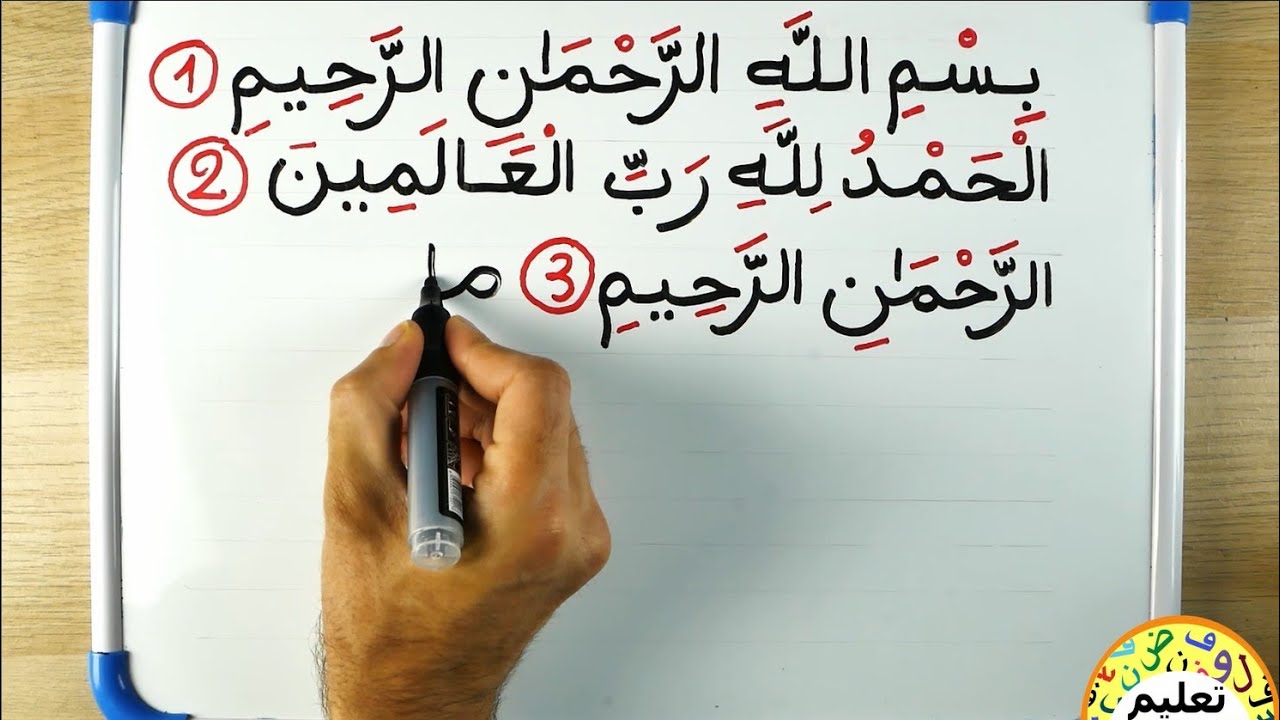 بِسْمِ اللَّهِ الرَّحْمَٰن الرَّحِيمِ 1
الْحَمْدُ لِلَّهِ رَبِّ الْعَالَمِينَ 2
الرَّحْمَٰنِ الرَّحِيمِ 3 ما
تعليم